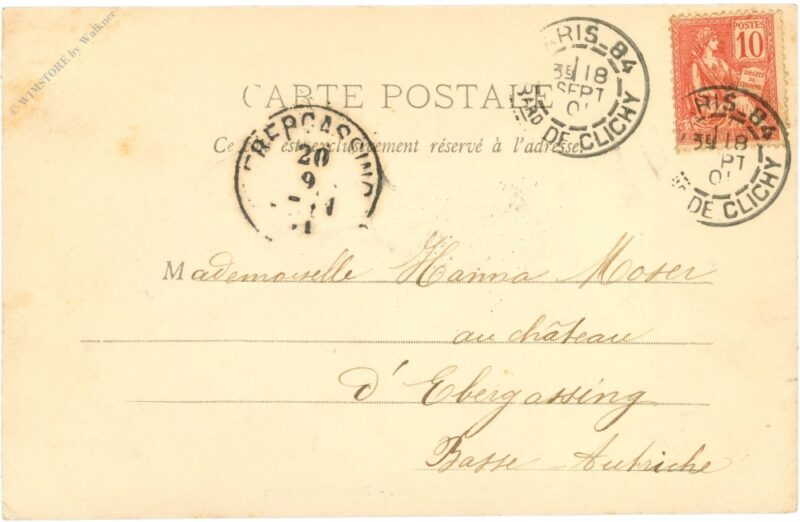 © WIMSTORE by Walkner
POSTES
10
DROITS DE L'HOMME
PARIS_84
18
SEPT
01
BARD DE CLICHY
PARIS_84
18
PT
01
DE CLICHY
CARTE POSTALE
Ce côté est exclusivement réservé à l'adresse
EBERGASSING
20
9
Mademoiselle Hanna Moser
au château
d'Ebergassing
Basse Autriche